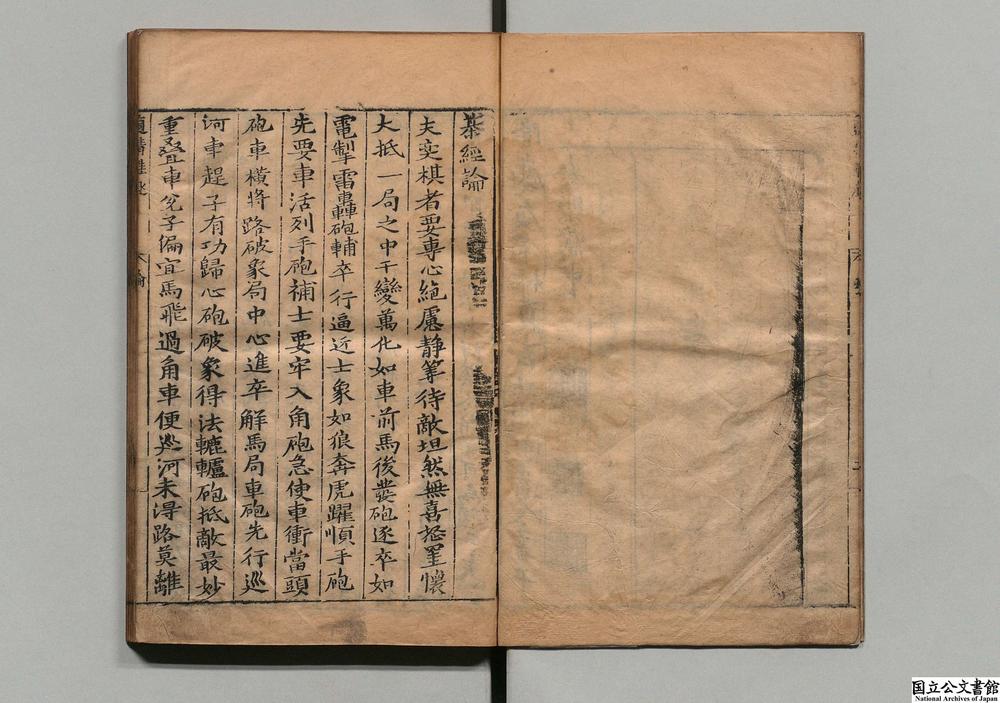 棊經論
夫奕棋者要專心絶慮静筭待敵坦然無喜怒𦊱懷
大抵一局之中千變萬化如車前馬後發砲逐卒如
電掣雷轟砲輔卒行逼近士象如狼奔虎躍順手砲
先要車活列手砲補士要牢入角砲急使車衝當頭
砲車橫將路破象局中心進卒解馬局車砲先行巡
河車趕子有功歸心砲破象得法轆轤砲抵敵最妙
重疊車兌子偏宜馬飛過角車便巡河未淂路莫離
国立公文書館
National Archives of Japan